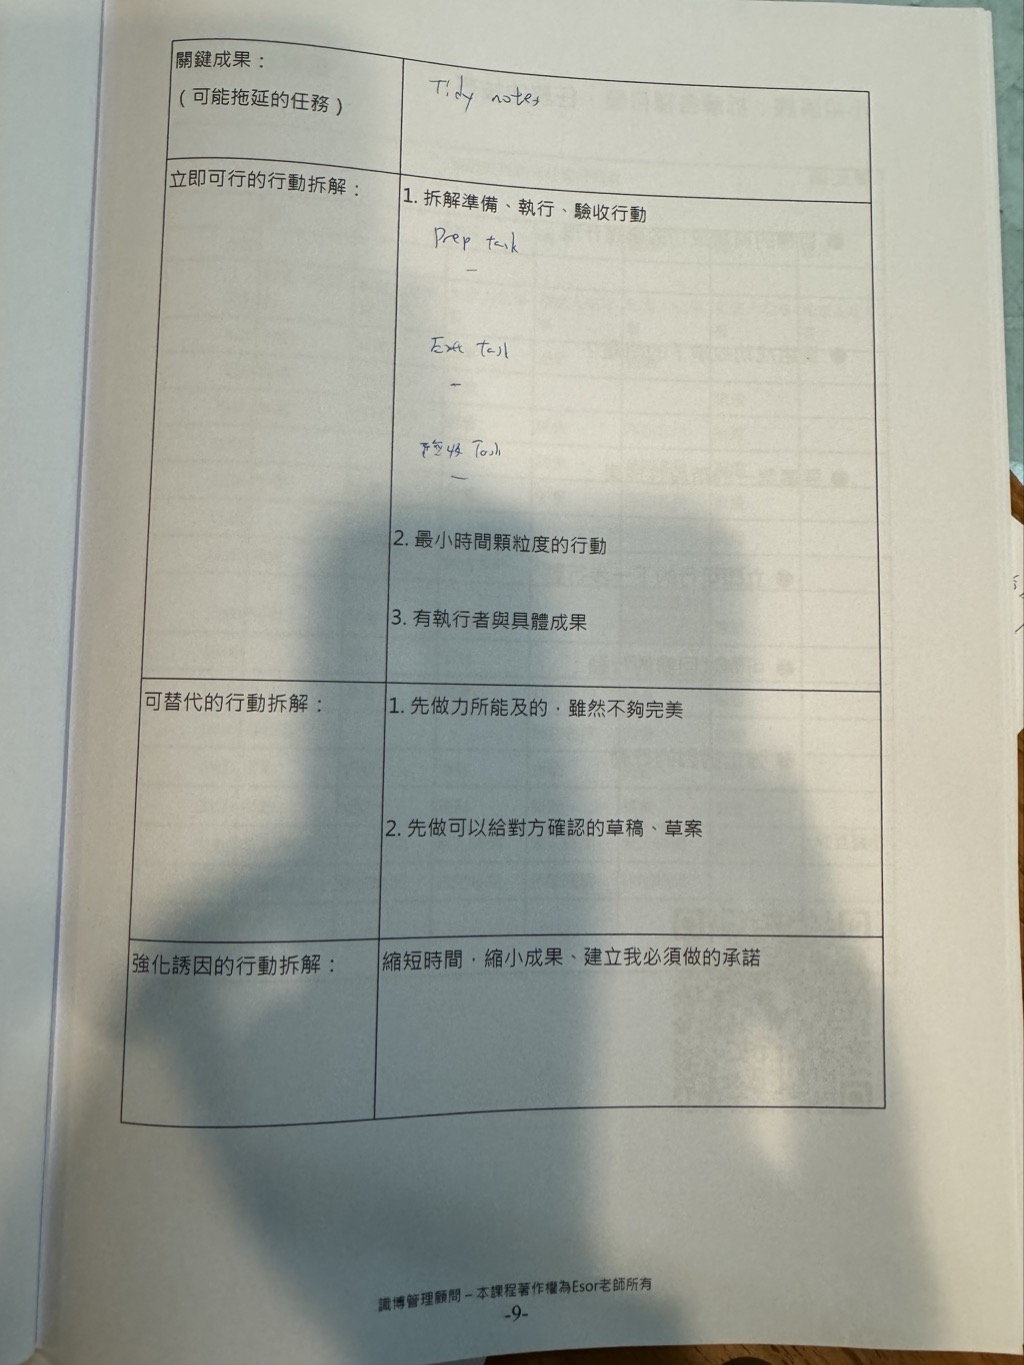 關鍵成果：
（可能拖延的任務）
Tidy notes
立即可行的行動拆解：
1. 拆解準備、執行、驗收行動
Prep task
-
Exe task
-
驗收 Task
-
2. 最小時間顆粒度的行動
3. 有執行者與具體成果
可替代的行動拆解：
1. 先做力所能及的，雖然不夠完美
2. 先做可以給對方確認的草稿、草案
強化誘因的行動拆解：
縮短時間，縮小成果、建立我必須做的承諾
識博管理顧問－本課程著作權為Esor老師所有
-9-